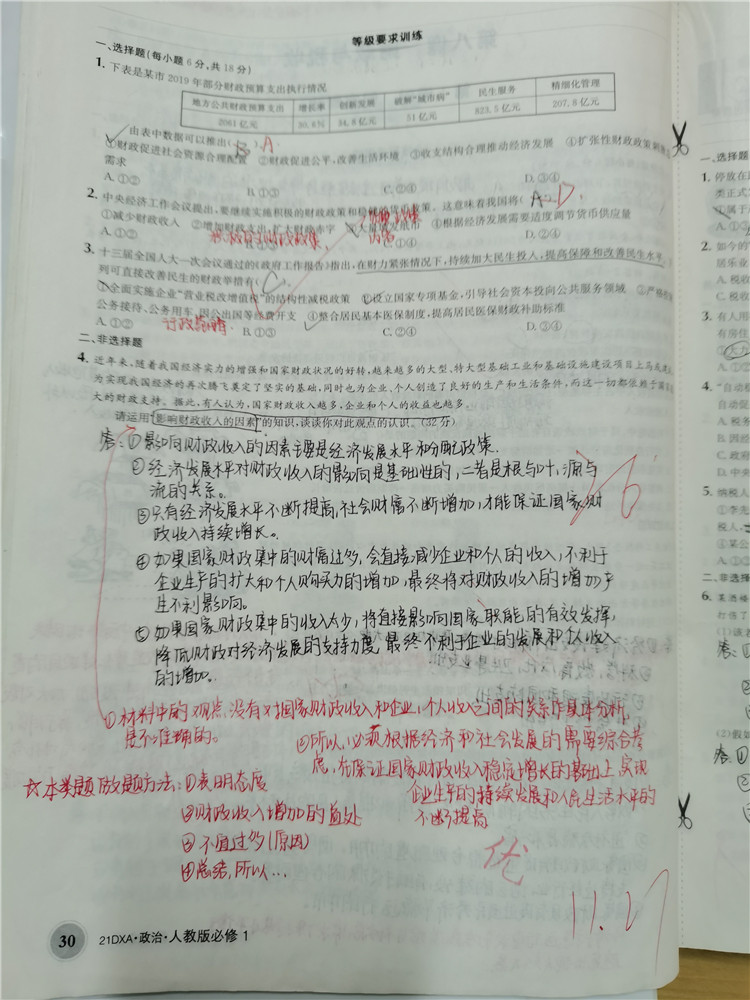 等级要求训练
一、选择题(每小题 6 分,共 18 分)
1. 下表是某市 2019 年部分财政预算支出执行情况
地方公共财政预算支出 增长率 创新发展 破解“城市病” 民生服务 精细化管理
2061 亿元 30.8% 34.8 亿元 51 亿元 823.5 亿元 207.8 亿元
由表中数据可以推出( B ) A
①财政促进社会资源合理配置 ②财政促进公平,改善生活环境 ③收支结构合理推动经济发展 ④扩张性财政政策刺激
需求
A. ①② B. ①③ C. ②④ D. ③④
2. 中央经济工作会议提出,要继续实施积极的财政政策和稳健的货币政策。这意味着我国将( A D.
①减少财政收入 ②增加政府支出,扩大财政赤字 ③大量增发纸币 ④根据经济发展需要适度调节货币供应量
A. ①② D. ②④
3. 十三届全国人大一次会议通过的《政府工作报告》指出,在财力紧张情况下,持续加大民生投入,提高保障和改善民生水平。
列可直接改善民生的财政举措有( C
①全面实施企业“营业税改增值税”的结构性减税政策 ②设立国家专项基金,引导社会资本投向公共服务领域 ③严格
公务接待、公务用车、因公出国等经费开支 ④整合居民基本医保制度,提高居民医保财政补助标准
A. ①② B. ①③ C. ②④ D. ③④
二、非选择题
4. 近年来,随着我国经济实力的增强和国家财政状况的好转,越来越多的大型、特大型基础工业和基础设施建设项目上马
为实现我国经济的再次腾飞奠定了坚实的基础,同时也为企业、个人创造了良好的生产和生活条件,而这一切都依赖于国家
大的财政支持。据此,有人认为,国家财政收入越多,企业和个人的收益也越多。
请运用“影响财政收入的因素”的知识,谈谈你对此观点的认识。(32 分)
答:①影响财政收入的因素主要是经济发展水平和分配政策.
②经济发展水平对财政收入的影响是基础性的,二者是根与叶,源与
流的关系。
③只有经济发展水平不断提高,社会财富不断增加,才能保证国家财
政收入持续增长。
④如果国家财政集中的财富过多,会直接减少企业和个人的收入,不利于
企业生产的扩大和个人购买力的增加,最终将对财政收入的增加产
生不利影响。
⑤如果国家财政集中的收入太少,将直接影响国家职能的有效发挥,
降低财政对经济发展的支持力度,最终不利于企业的发展和个人收入
的增加.
26
①材料中的观点,没有对国家财政收入和企业,个人收入之间的关系作具体分析,
是不准确的。
⑥所以,必须根据经济和社会发展的需要综合考
虑,在保证国家财政收入稳定增长的基础上,实现
企业生产的持续发展和人民生活水平的
不断提高
☆本类题做题方法:①表明态度
②财政收入增加的益处
③不宜过多(原因)
④总结,所以…
优
11.27
30 21DXA·政治·人教版必修 1